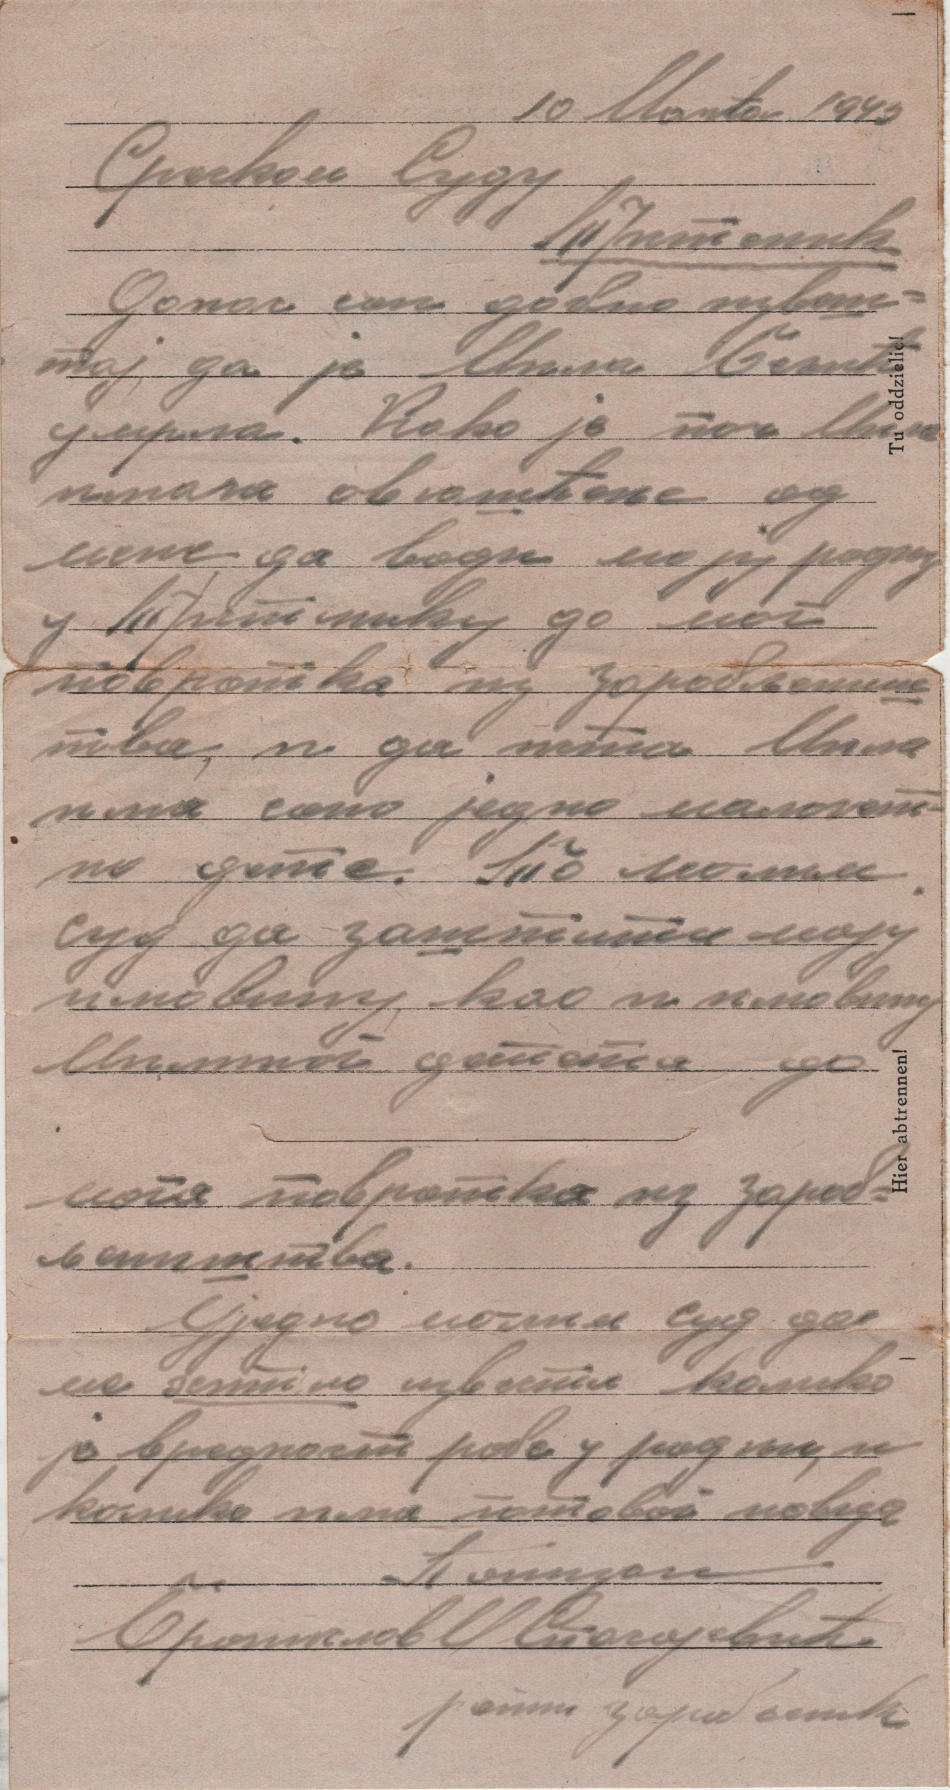 10 Марта 1943
Среском Суду
Трстеник
Данас сам добио извеш=
тај, да је Мила
умрла. Како је поч Мила
имала овлашћење од
мене да води моју радњу
у Трстенику до мог
повратка из заробљениш
тва, и да иста Мила
има само једно малолет-
но дете. То молим
суд да заштити моју
имовину, као и имовину
Милиног детета до
мога повратка из зароб=
љеништва.
Уједно молим суд да
ме извести колико
је вредност робе у радњи, и
колико има готовог новца
Поздрав
Бранислав
ратни заробљеник
Tu oddzielić!
Hier abtrennen!